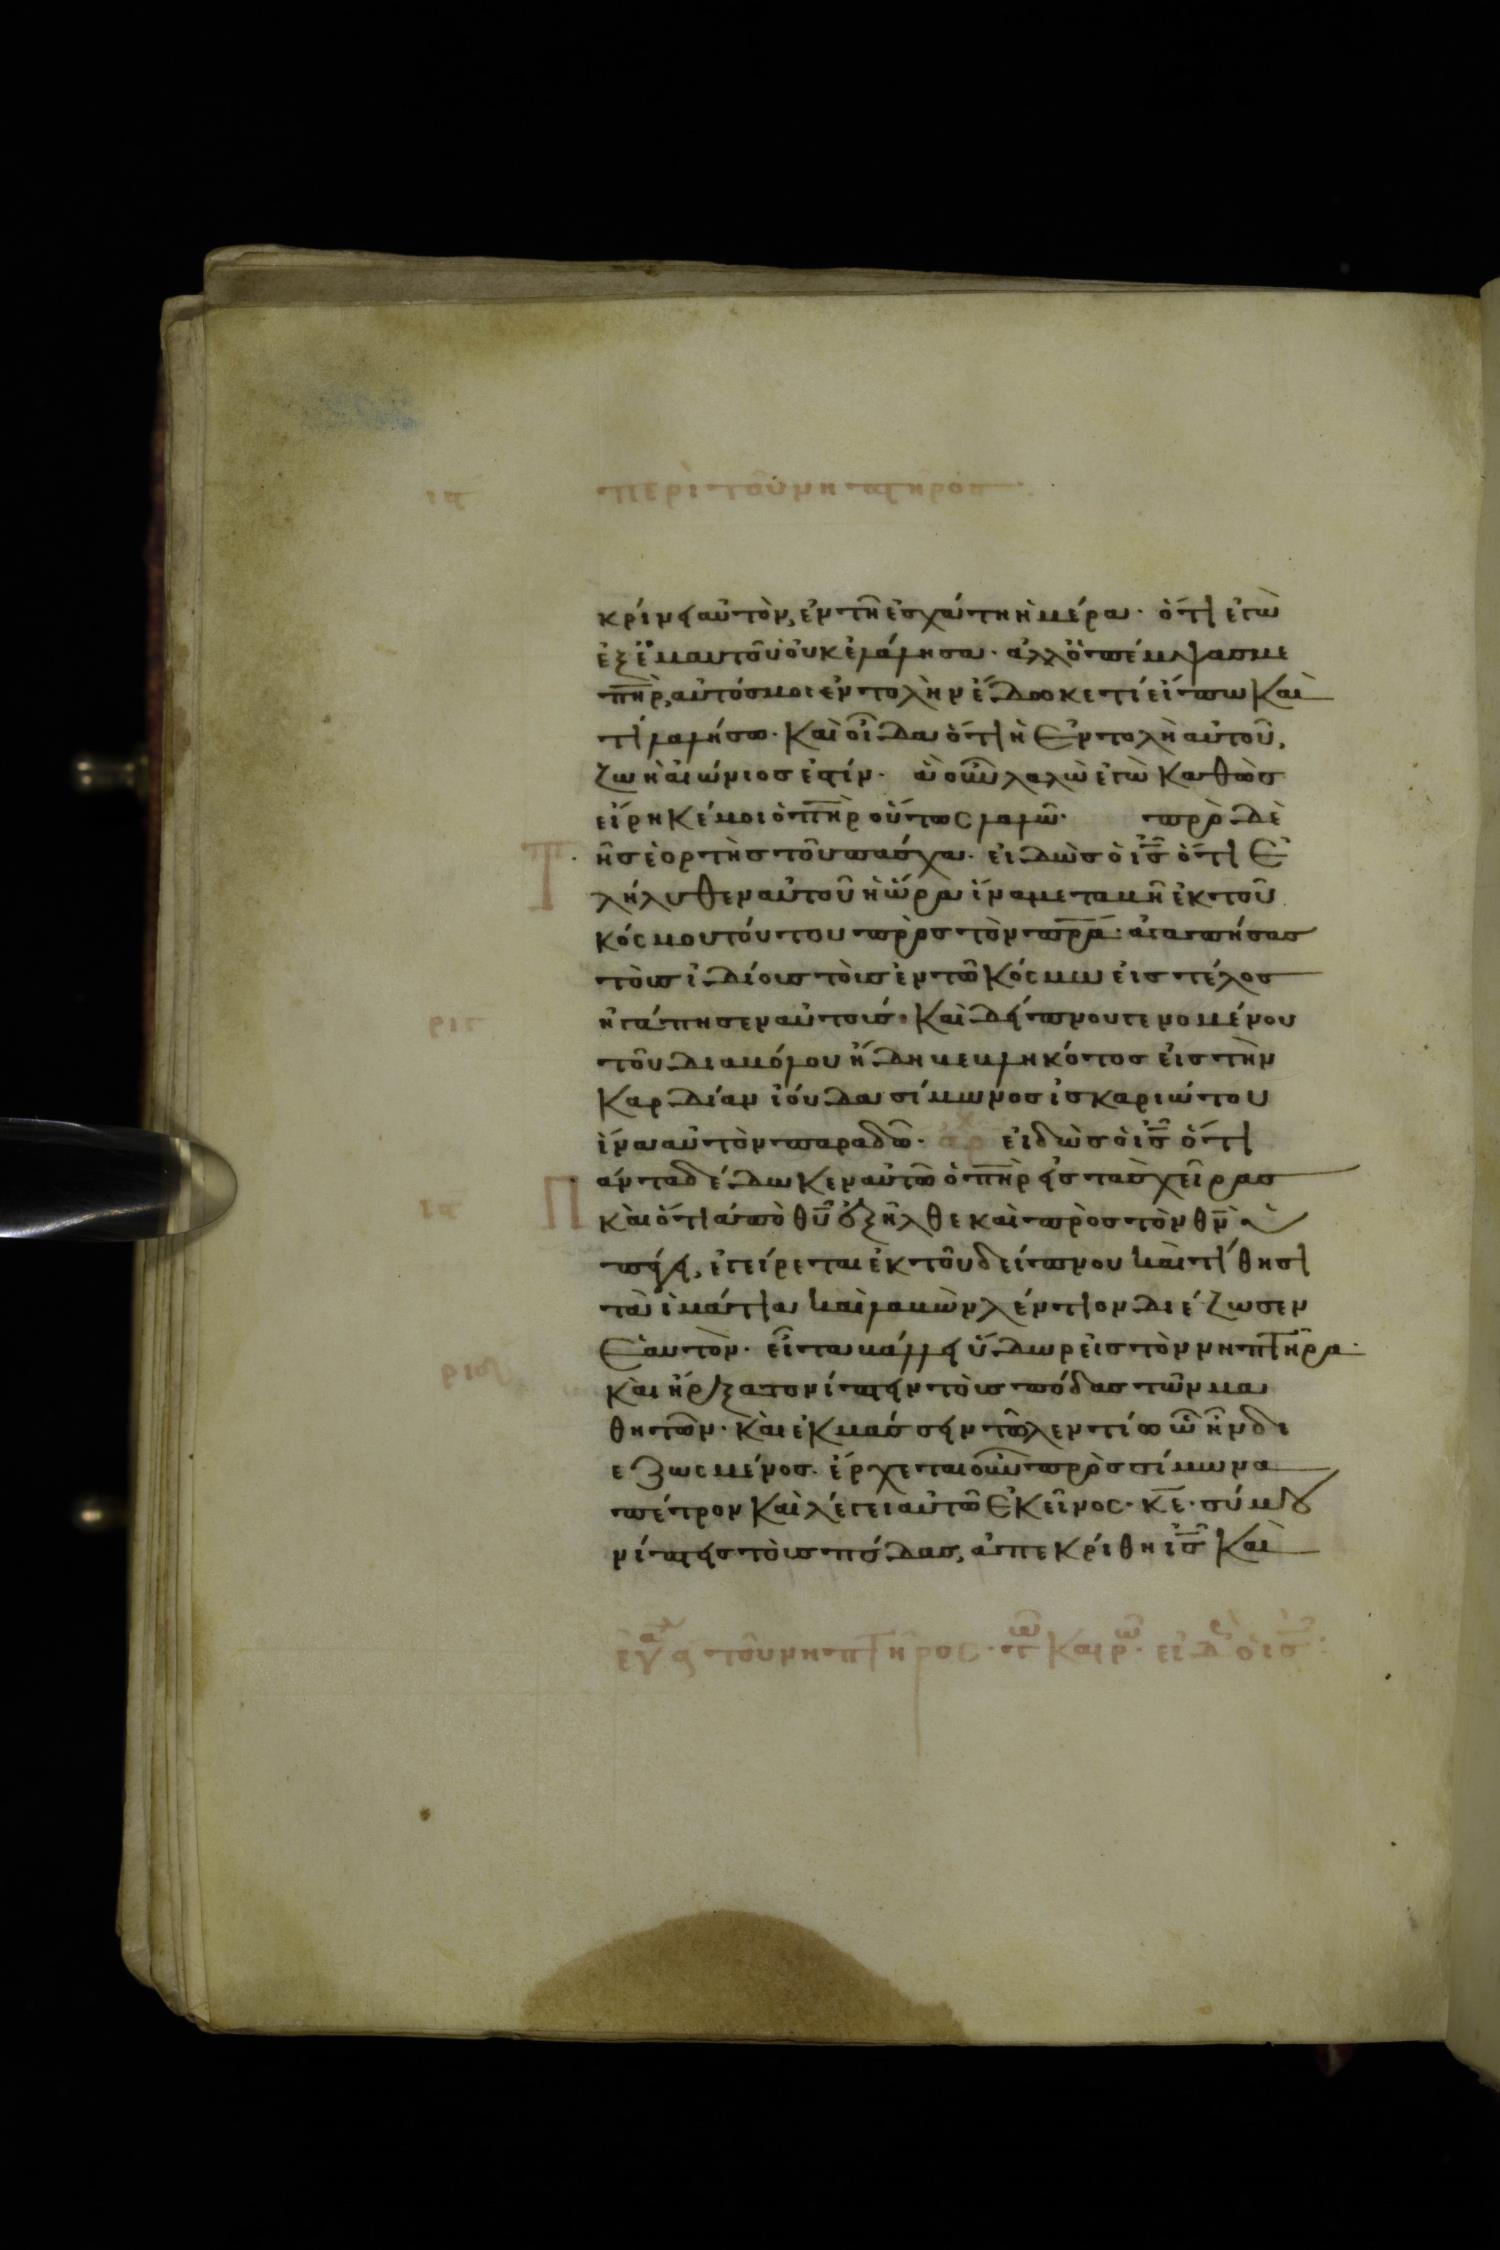 περὶ τοῦ νηπτῆρος
κρίνει αὐτὸν, ἐν τῆ ἐσχάτη ἡμέρα· ὅτι ἐγὼ
ἐξ ἐμαυτοῦ οὐκ ἐλάλησα· ἀλλ' ὁ πέμψας με
π̅η̅ρ, αὐτός μοι ἐντολὴν ἔδωκε τί εἴπω καὶ
τί λαλήσω· καὶ οἶδα ὅτι ἡ ἐντολὴ αὐτοῦ,
ζωὴ αἰώνιος ἐστίν· ἃ οὖν λαλῶ ἐγὼ καθὼς
εἴρηκέ μοι ὁ π̅η̅ρ οὕτως λαλῶ· πρὸ δὲ
Τῆς ἑορτῆς τοῦ πάσχα· εἰδὼς ὁ ι̅ς̅ ὅτι ἐ
λήλυθεν αὐτοῦ ἡ ὥρα ἵνα μεταβῆ ἐκ τοῦ
κόσμου τούτου πρὸς τὸν π̅ρ̅α· ἀγαπήσας
τοὺς ἰδίους τοὺς ἐν τῶ κόσμω εἰς τέλος
ἠγάπησεν αὐτούς· καὶ δείπνου γενομένου
τοῦ διαβόλου ἤδη βεβληκότος εἰς τὴν
καρδίαν ἰούδα σίμωνος ἰσκαριώτου
ἵνα αὐτὸν παραδῶ· ἀρχ εἰδὼς ὁ ι̅ς̅ ὅτι
Πάντα δέδωκεν αὐτῶ ὁ π̅η̅ρ εἰς τὰς χεῖρας
καὶ ὅτι ἀπὸ θ̅υ̅ ἐξῆλθε καὶ πρὸς τὸν θ̅ν̅ ὑ
πάγει, ἐγείρεται ἐκ τοῦ δείπνου καὶ τίθησι
τὰ ἱμάτια καὶ λαβὼν λέντιον διέζωσεν
ἑαυτὸν· εἶτα βάλλει ὕδωρ εἰς τὸν νηπτῆρα·
καὶ ἤρξατο νίπτειν τοὺς πόδας τῶν μα
θητῶν· καὶ ἐκμάσσειν τῶ λεντίω ὧ ἦν δι
εζωσμένος· ἔρχεται οὖν πρὸς σίμωνα
πέτρον καὶ λέγει αὐτῶ ἐκεῖνος· κ̅ε̅· σύ μου
νίπτεις τοὺς πόδας, ἀπεκρίθη ι̅ς̅ καὶ
τοῦ νηπτῆρος· τῶ καιρῶ· εἰδ ὁ ι̅ς̅